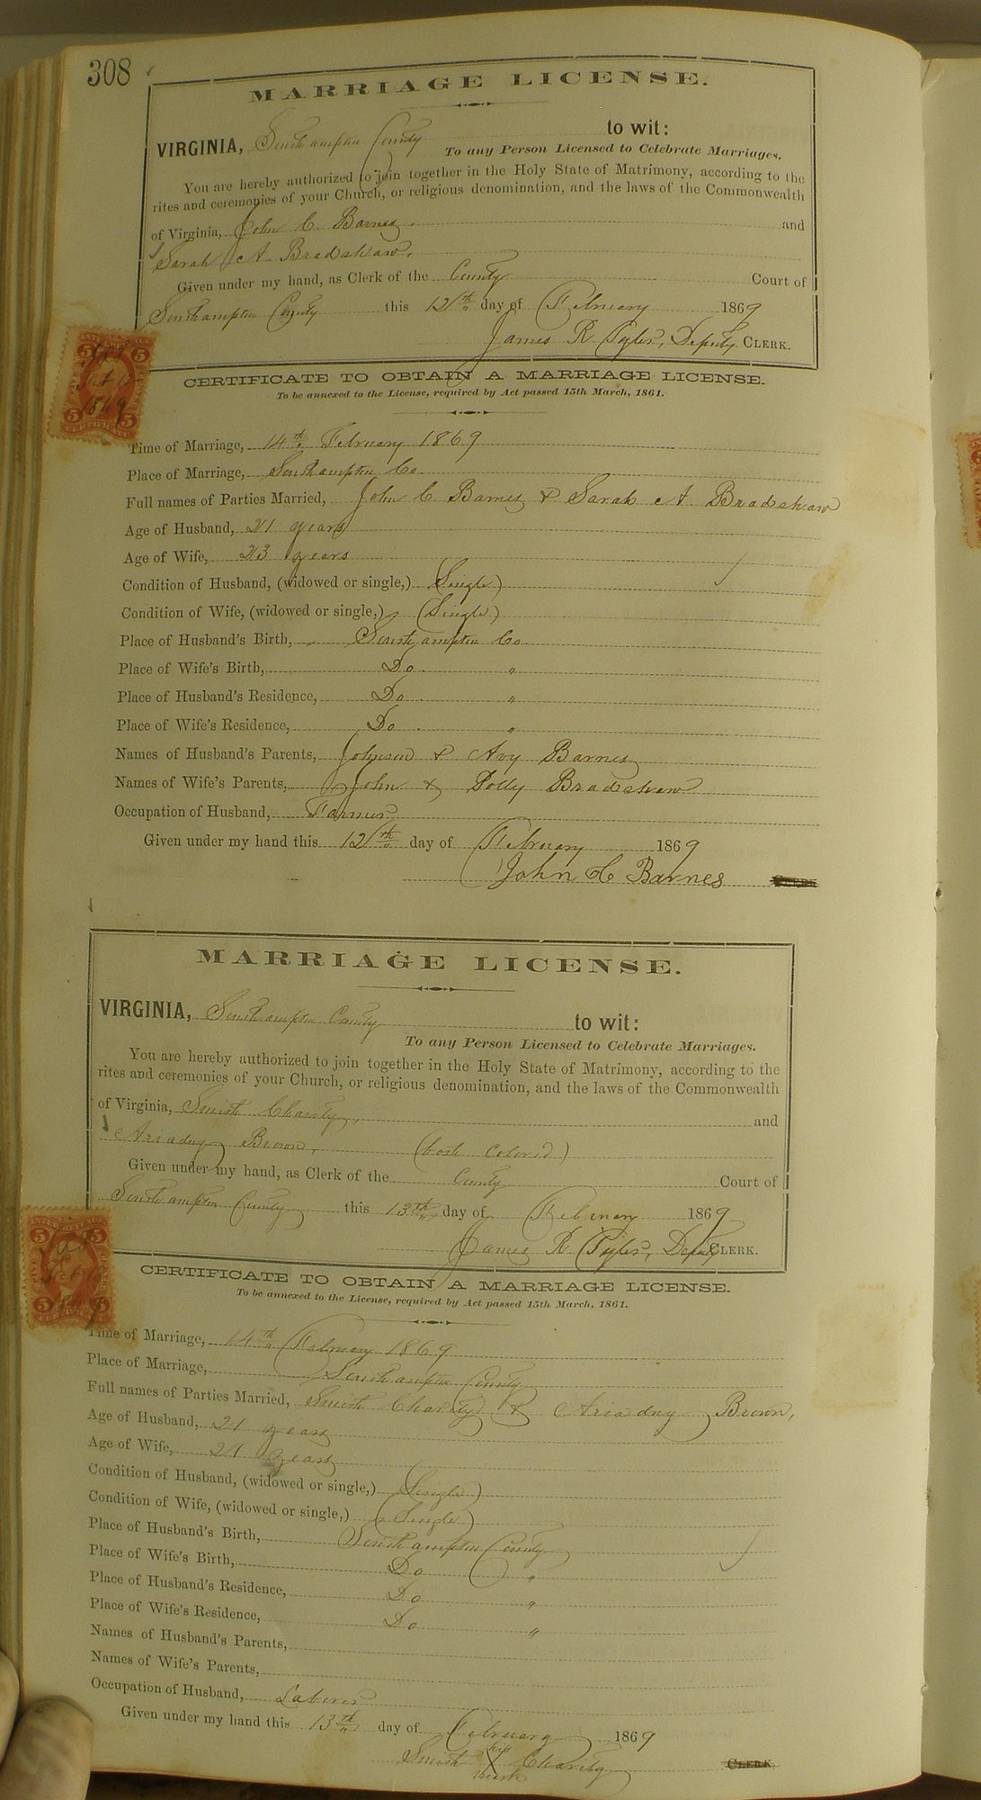 308
MARRIAGE LICENSE.
VIRGINIA, Southampton County to wit:
To any Person Licensed to Celebrate Marriages.
You are hereby authorized to join together in the Holy State of Matrimony, according to the
rites and ceremonies of your Church, or religious denomination, and the laws of the Commonwealth
of Virginia, John C. Barnes and
Sarah A. Bradshaw,
Given under my hand, as Clerk of the County Court of
Southampton County this 12th day of February 1869
James R. Tyler, Deputy CLERK.
CERTIFICATE TO OBTAIN A MARRIAGE LICENSE.
To be annexed to the License, required by Act passed 15th March, 1861.
Time of Marriage, 14th February 1869
Place of Marriage, Southampton Co
Full names of Parties Married, John C. Barnes & Sarah A. Bradshaw
Age of Husband, 21 years
Age of Wife, 23 years
Condition of Husband, (widowed or single,) (Single)
Condition of Wife, (widowed or single,) (Single)
Place of Husband's Birth, Southampton Co
Place of Wife's Birth, Do "
Place of Husband's Residence, Do "
Place of Wife's Residence, Do "
Names of Husband's Parents, Johnson & Avy Barnes
Names of Wife's Parents, John & Dolly Bradshaw
Occupation of Husband, Farmer
Given under my hand this 12th day of February 1869
John C Barnes
MARRIAGE LICENSE.
VIRGINIA, Southampton County to wit:
To any Person Licensed to Celebrate Marriages.
You are hereby authorized to join together in the Holy State of Matrimony, according to the
rites and ceremonies of your Church, or religious denomination, and the laws of the Commonwealth
of Virginia, Smith Charity, and
Ariadny Brown, (both colored)
Given under my hand, as Clerk of the County Court of
Southampton County this 13th day of February 1869
James R. Tyler, Deputy CLERK.
CERTIFICATE TO OBTAIN A MARRIAGE LICENSE.
To be annexed to the License, required by Act passed 15th March, 1861.
Time of Marriage, 14th February 1869
Place of Marriage, Southampton County
Full names of Parties Married, Smith Charity & Ariadny Brown,
Age of Husband, 21 years
Age of Wife, 21 years
Condition of Husband, (widowed or single,) (Single)
Condition of Wife, (widowed or single,) (Single)
Place of Husband's Birth, Southampton County
Place of Wife's Birth, Do "
Place of Husband's Residence, Do "
Place of Wife's Residence, Do "
Names of Husband's Parents,
Names of Wife's Parents,
Occupation of Husband, Laborer
Given under my hand this 13th day of February 1869
Smith his X mark Charity CLERK.